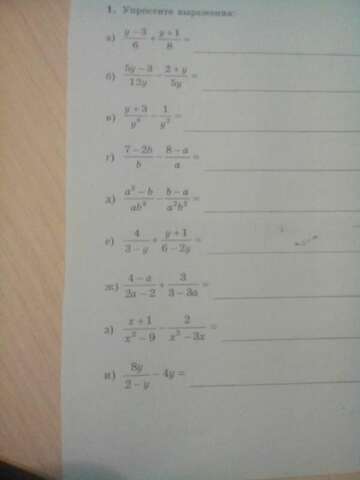 1. Упростите выражения:
а) \frac{y-3}{6} + \frac{y+1}{8} =
б) \frac{5y-3}{12y} - \frac{2+y}{5y} =
в) \frac{y+3}{y^4} - \frac{1}{y^3} =
г) \frac{7-2b}{b} - \frac{8-a}{a} =
д) \frac{a^2-b}{ab^2} - \frac{b-a}{a^2b^2} =
е) \frac{4}{3-y} + \frac{y+1}{6-2y} =
ж) \frac{4-a}{2a-2} + \frac{3}{3-3a} =
з) \frac{x+1}{x^2-9} - \frac{2}{x^2-3x} =
и) \frac{8y}{2-y} - 4y =